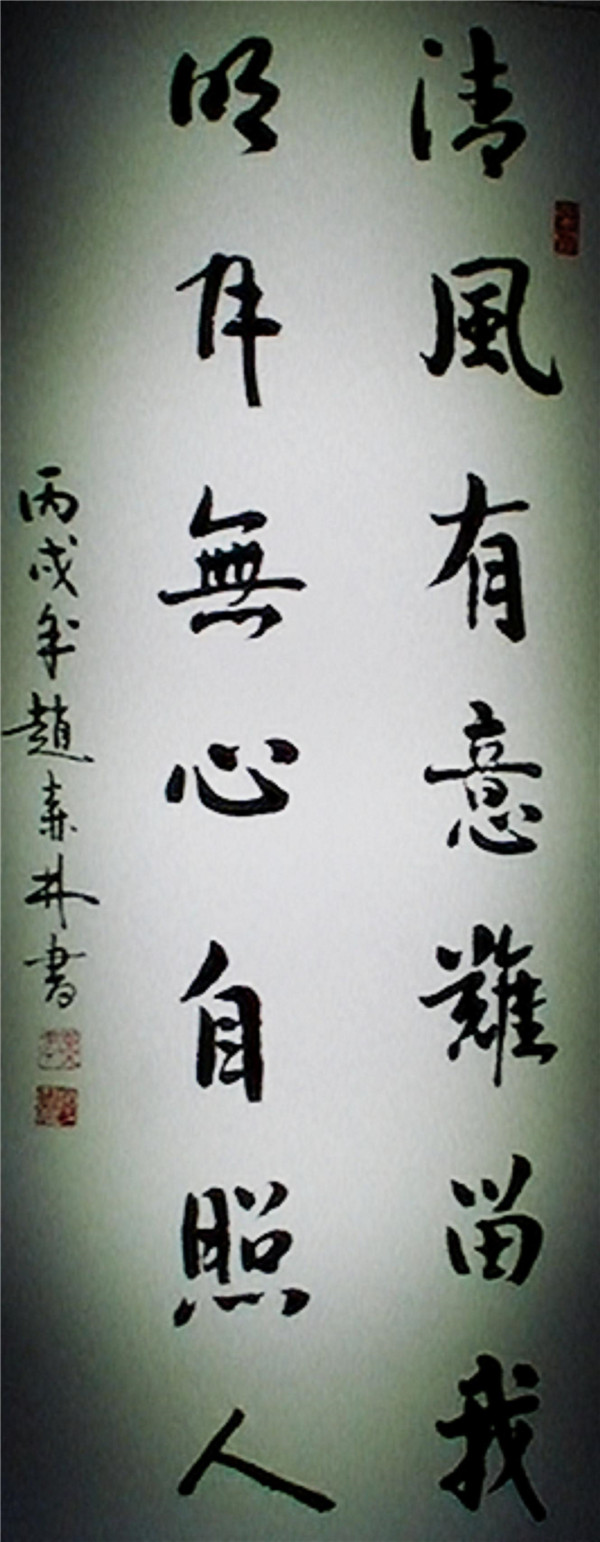 清風有意難留我
明月無心自照人
丙戌年趙林書